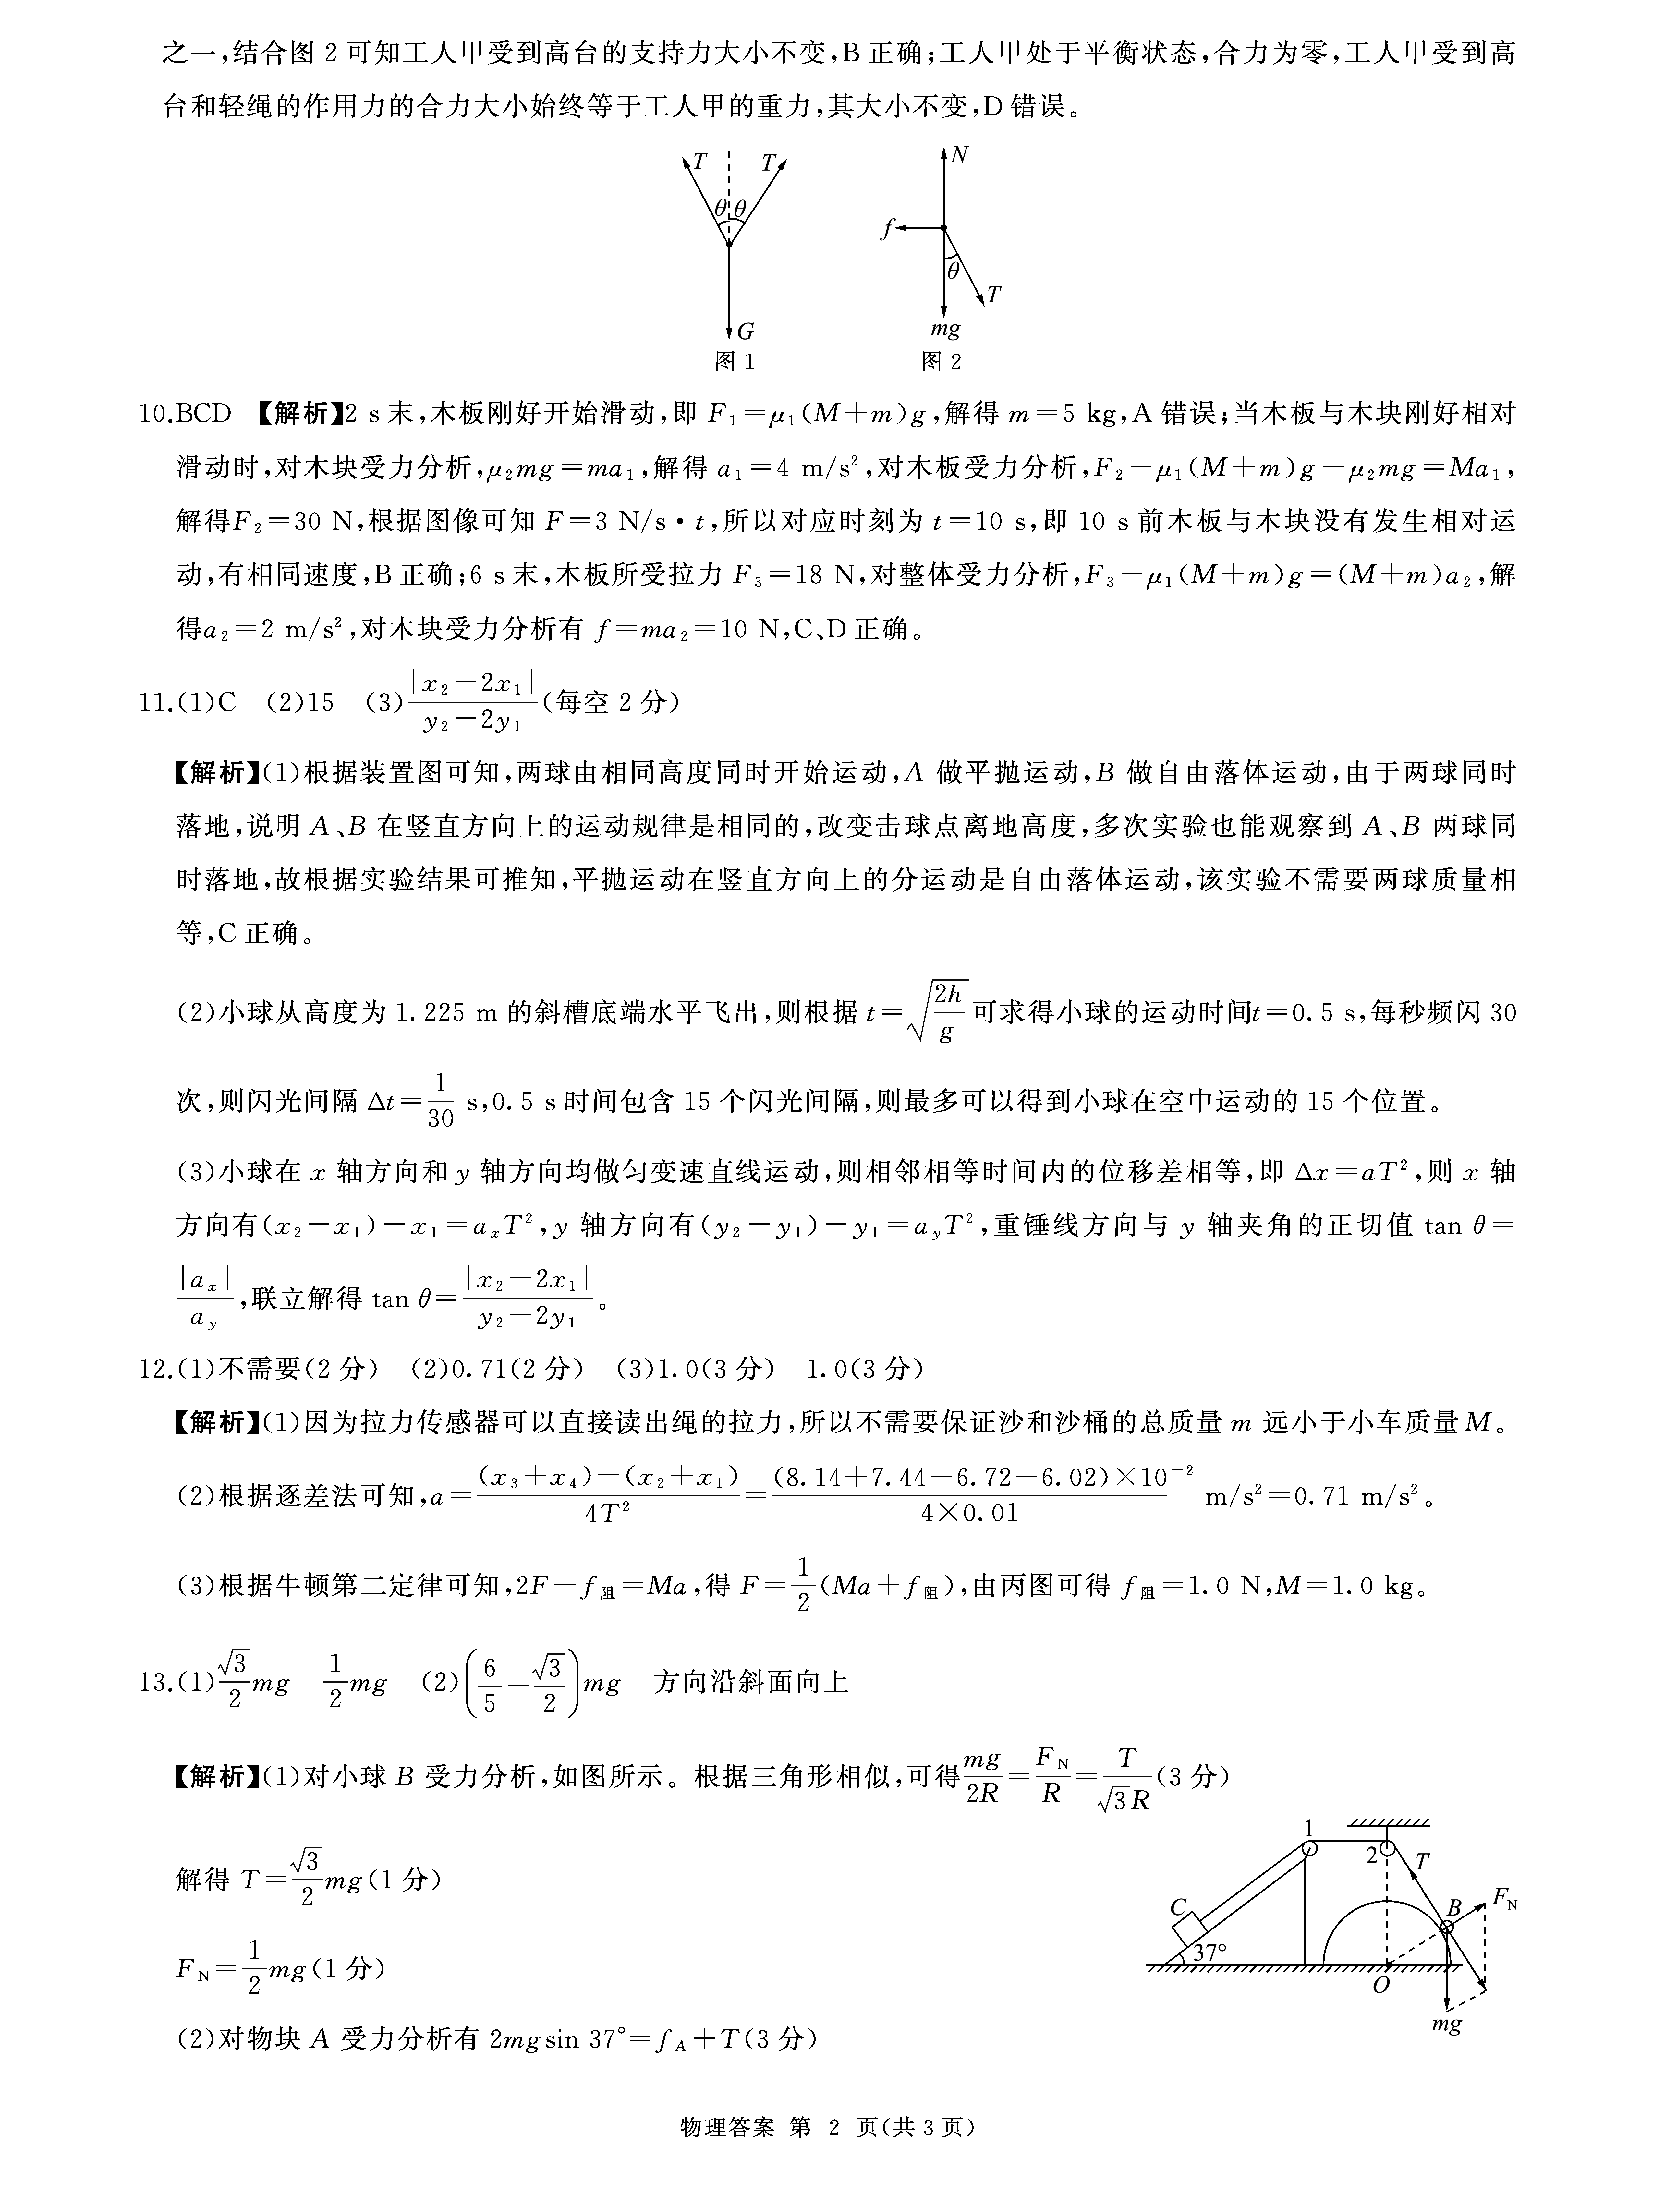 之一,结合图 2 可知工人甲受到高台的支持力大小不变,B 正确;工人甲处于平衡状态,合力为零,工人甲受到高
台和轻绳的作用力的合力大小始终等于工人甲的重力,其大小不变,D 错误。
T T N
θ θ f
θ T
G mg
图 1 图 2
10.BCD 【解析】2 s 末,木板刚好开始滑动,即 F₁=μ₁(M+m)g,解得 m=5 kg,A 错误;当木板与木块刚好相对
滑动时,对木块受力分析,μ₂mg=ma₁,解得 a₁=4 m/s²,对木板受力分析,F₂-μ₁(M+m)g-μ₂mg=Ma₁,
解得F₂=30 N,根据图像可知 F=3 N/s·t,所以对应时刻为 t=10 s,即 10 s 前木板与木块没有发生相对运
动,有相同速度,B 正确;6 s 末,木板所受拉力 F₃=18 N,对整体受力分析,F₃-μ₁(M+m)g=(M+m)a₂,解
得a₂=2 m/s²,对木块受力分析有 f=ma₂=10 N,C、D 正确。
11.(1)C (2)15 (3)|x₂-2x₁|/(y₂-2y₁)(每空 2 分)
【解析】(1)根据装置图可知,两球由相同高度同时开始运动,A 做平抛运动,B 做自由落体运动,由于两球同时
落地,说明 A、B 在竖直方向上的运动规律是相同的,改变击球点离地高度,多次实验也能观察到 A、B 两球同
时落地,故根据实验结果可推知,平抛运动在竖直方向上的分运动是自由落体运动,该实验不需要两球质量相
等,C 正确。
(2)小球从高度为 1.225 m 的斜槽底端水平飞出,则根据 t=√(2h/g)可求得小球的运动时间t=0.5 s,每秒频闪 30
次,则闪光间隔 Δt=1/30 s,0.5 s 时间包含 15 个闪光间隔,则最多可以得到小球在空中运动的 15 个位置。
(3)小球在 x 轴方向和 y 轴方向均做匀变速直线运动,则相邻相等时间内的位移差相等,即 Δx=aT²,则 x 轴
方向有(x₂-x₁)-x₁=aₓT²,y 轴方向有(y₂-y₁)-y₁=a_yT²,重锤线方向与 y 轴夹角的正切值 tan θ=
|aₓ|/a_y,联立解得 tan θ=|x₂-2x₁|/(y₂-2y₁)。
12.(1)不需要(2 分) (2)0.71(2 分) (3)1.0(3 分) 1.0(3 分)
【解析】(1)因为拉力传感器可以直接读出绳的拉力,所以不需要保证沙和沙桶的总质量 m 远小于小车质量M。
(2)根据逐差法可知,a=((x₃+x₄)-(x₂+x₁))/4T²=((8.14+7.44-6.72-6.02)×10⁻²)/(4×0.01) m/s²=0.71 m/s²。
(3)根据牛顿第二定律可知,2F-f阻=Ma,得 F=1/2(Ma+f阻),由丙图可得 f阻=1.0 N,M=1.0 kg。
13.(1)√3/2mg 1/2mg (2)(6/5-√3/2)mg 方向沿斜面向上
【解析】(1)对小球 B 受力分析,如图所示。根据三角形相似,可得mg/2R=F_N/R=T/√3R(3 分)
解得 T=√3/2mg(1 分)
F_N=1/2mg(1 分)
(2)对物块 A 受力分析有 2mgsin 37°=f_A+T(3 分)
1
2 T
C B F_N
37°
O
mg
物理答案 第 2 页(共 3 页)